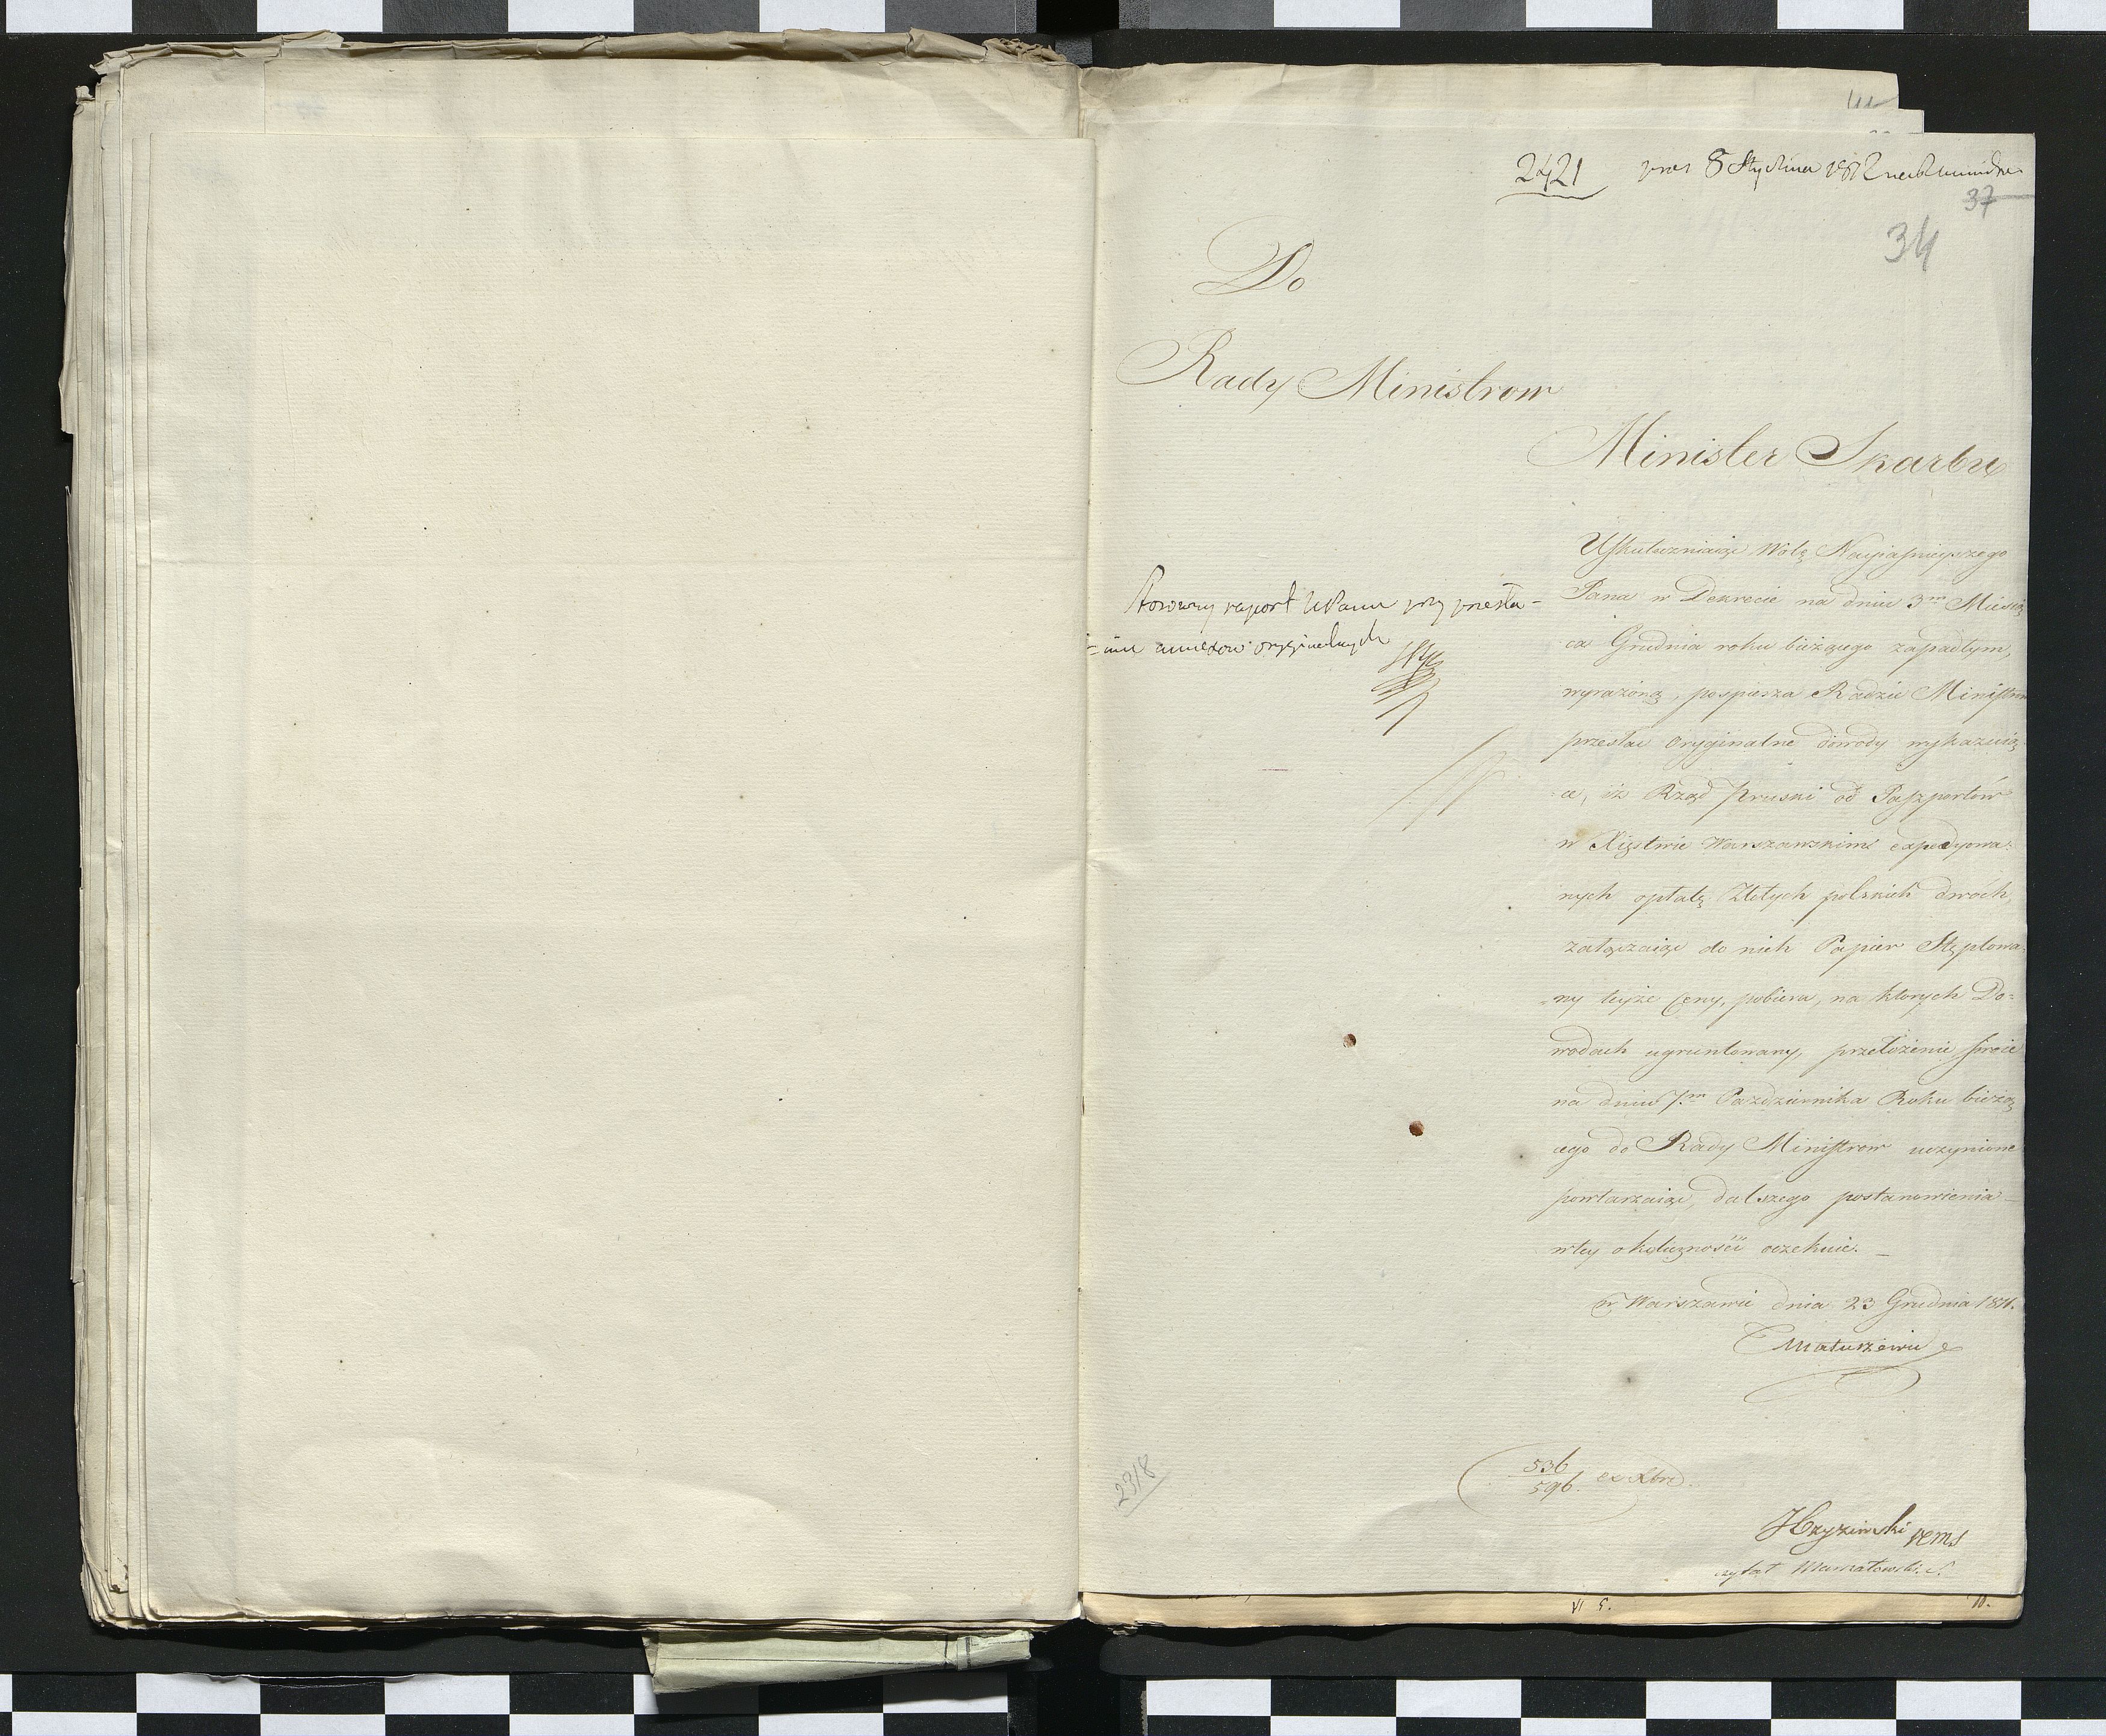 2421 8 Stycznia 1812
37
34
Do
Rady Ministrow
Minister Skarbu
Uskuteczniaiąc Wolą Nayiaśnieyszego
Pana w Dekrecie na dniu 3m Miesią
ca Grudnia roku bieżącego zapadłym,
wyrażoną, pospiesza Radzie Ministrow
przesłać oryginalne dowody wykazuią
ce, iż Rząd Pruski od Paszportów
w Xięstwie Warszawskim expedyowa=
nych opłatę Złotych polskich dwóch,
załączaiąc do nich Papier Stęplowa
=ny teyże Ceny, pobiera, na ktorych Do=
wodach ugruntowany, przełożenie swoie
na dniu 7m Pazdziernika Roku bieżą
cego do Rady Ministrow uczynione
powtarzaiąc, dalszego postanowienia
wtey okoliczności oczekuie. _
w Warszawie dnia 23 Grudnia 1811.
Matuszewic
Stosowny raport JKPanu przy przesła=
=niu annexow oryginalnych
536
596.
2318
czytał